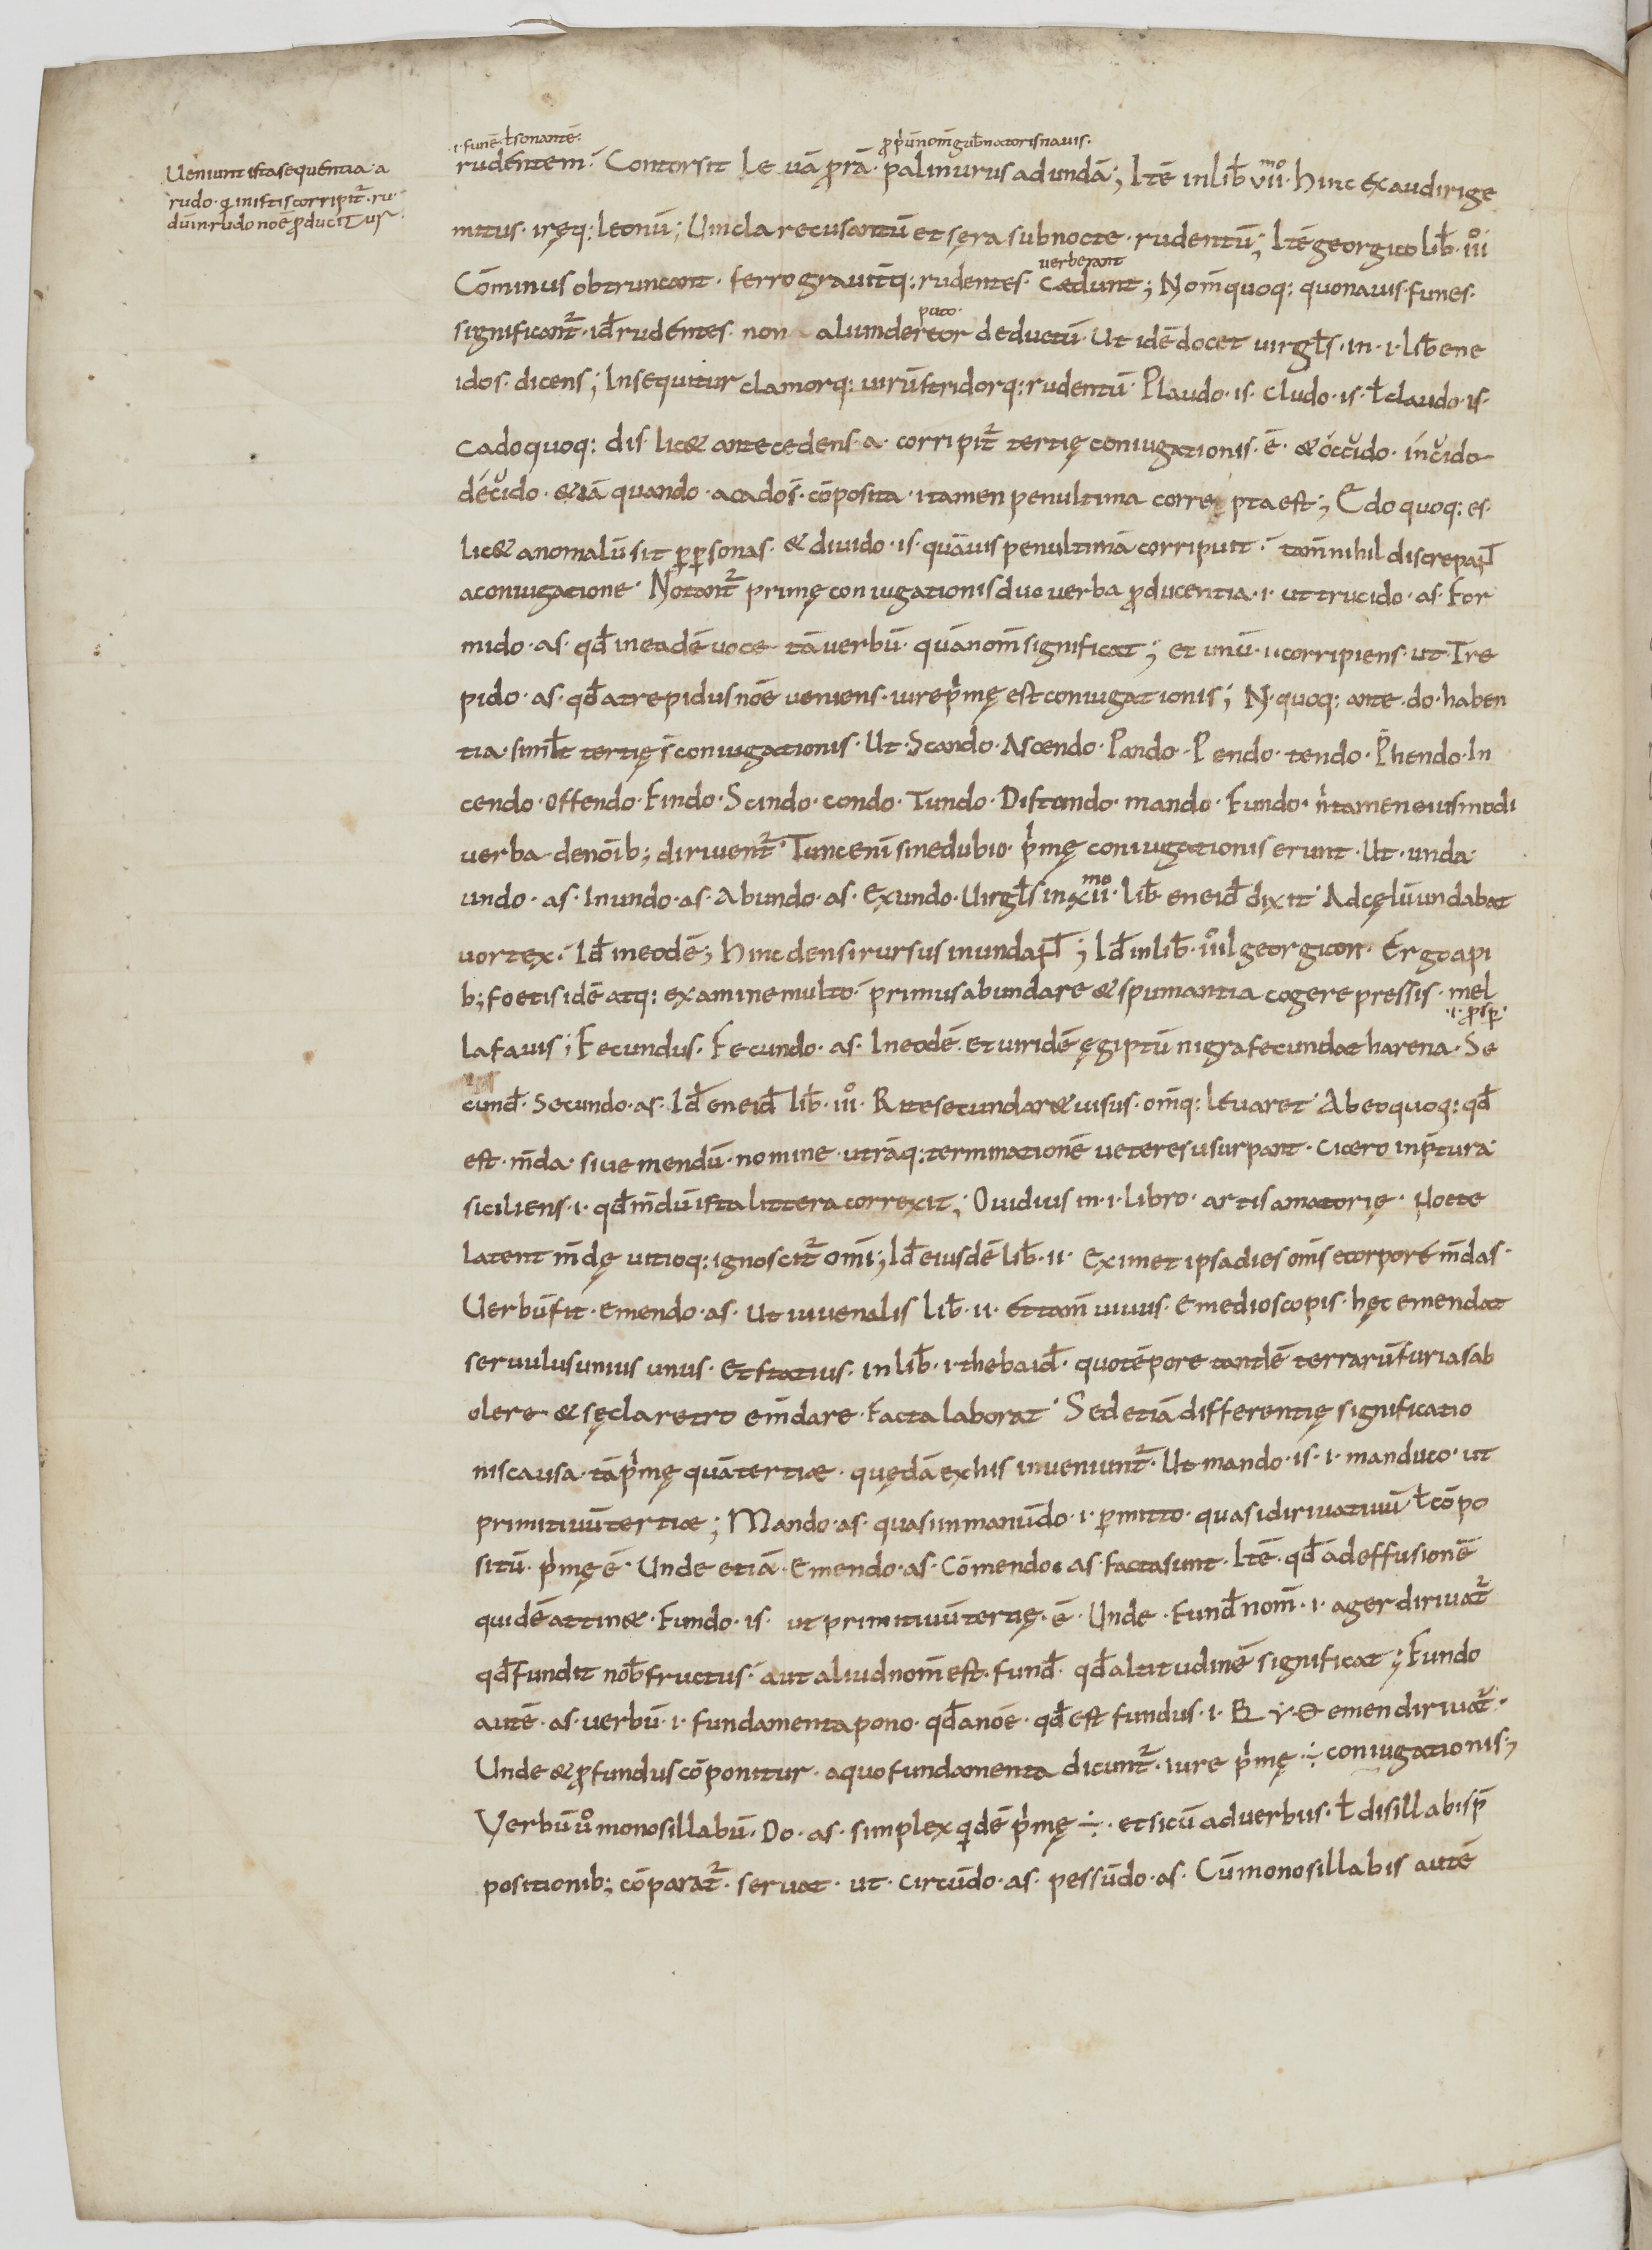 Ueniunt ista sequentia a
rudo · q̄ in istis corripit̃ · ru
dū in rudo noē ꝓducitur
·i· funē · ł sonantē ·
ꝓpriū nom̄ gub̄natoris nauis ·
rudentem · Contorsit leuā ꝓrā · palinurus ad undā ; Itē in lib̄ vii mo · hinc exaudiri ge
mitus · iręq : leonū ; Uincla recusantū et sęra sub nocte · rudentū ; Itē georgico lib̄ · iii o
uerberant
Cominus obtruncant · ferro grauit̄q : rudentes · cædunt ; Nom̄ quoq : quo nauis funes ·
puto ·
significant̃ · id̄ rudentes · non aliunde reor deductū · Ut idē docet uirgl̄s · in · i · lib̄ ene
idos · dicens ; Insequitur clamorq : uirū stridorq : rudentū · Plaudo · is · cludo · is · ł claudo · is ·
cado quoq : dis · lic& antecedens · a · corripit̃ tertię coniugationis · ē · & occido · incido
decido · & iā quando · a cado s̄ · cōposita · i tamen penultima correpta est ; Edo quoq : es ·
lic& anomalū sit p̲ p̲sonas · & diuido · is · quāuis penultimā corripuit · tam̄ nihil discrepat
a coniugatione · Notant̃ primę coniugationis duo uerba ꝓducentia · i · ut trucido · as · For
mido · as · qd̄ in eadē uoce tā uerbū · quā nom̄ significat ; et unū · i corripiens · ut · Tre
pido · as · qd̄ a trepidus noē ueniens · iure p̓mę est coniugationis ; N · quoq : ante · do · haben
tia · simil̄t tertię s̄ coniugationis · Ut · Scando · Ascendo · Pando · Pendo · tendo · P̄hendo · In
cendo · offendo · Findo · Scindo · condo · Tundo · Distendo · mando · Fundo · n̓ tamen eiusmodi
uerba de noīb ; diriuent̃ · Tunc eni sine dubio p̓mę coniugationis erunt · Ut · unda
undo · as · Inundo · as · Abundo · as · Exundo · Uirgl̄s in xii mo · lib̄ · eneid̄ dixit · Ad cęlū undabat
uortex · Id̄ in eodē ; hinc densi rursus inundant ; Id̄ in lib̄ · iiii georgicon · Ergo api
b ; foetis idē atq : examine multo · primus abundare & spumantia cogere pressis · mel
·i· ꝓsp̲
la fauis ; Fecundus · Fecundo · as · In eodē · et uiridē ęgiptū nigra fecundat harena · Se
cund̄ · Secundo · as · Id̄ eneid̄ lib̄ · iii o · Rite secundar& uisus · om̄q : leuaret · Ab eo quoq : qd̄
est · m̄da · siue mendū · nomine · utrāq : terminationē ueteres usurpant · Cicero in p̄tura
siciliens · i · qd̄ m̄dū ista littera correxit ; Ouidius in · i · libro · artis amatorię · Nocte
latent m̄dę uitioq : ignoscit̃ omī ; Id̄ eiusdē lib̄ · ii · Eximet ipsa dies om̄s e corpore m̄das ·
Uerbū fit · Emendo · as · Ut iuuenalis lib̄ · ii · et tam̄ uiuus · E medio scopis · hęc emendat
seruulus unius unus · Et statius · in lib̄ · i · thebaid̄ · quo tēpore tandē terrarū furias ab
olere & sęcla retro em̄dare · Facta laborat · Sed etiā differentię significatio
nis causa · tā p̓mę quā tertiæ · quędā ex his inueniunt̃ · Ut mando · is · i · manduco · ut
primitiuū tertiæ ; Mando · as · quasi in manū do · i · p̲mitto · quasi diriuatiuū ł cōpo
sitū · p̓mę ē · Unde etiā · Emendo · as · Cōmendo · as · facta sunt · Itē · qd̄ ad effusionē
quidē attin& · Fundo · is · ut primitiuū tertię · ē · Unde · Fund̄ nom̄ · i · ager diriuat̃
qd̄ fundit nob̄ fructus · aut aliud nom̄ est · fund̄ · qd̄ altitudinē significat ; Fundo
autē · as · uerbū · i · fundamenta pono · qd̄ a noē · qd̄ est fundus · i · B Y Θ emen diriuat̃ ·
Unde & ꝓfundus cōponitur · a quo fundamenta dicunt̃ · iure p̓mę ÷ coniugationis ;
Verbū ů monosillabū · Do · as · simplex qidē p̓mę ÷ · et si cū aduerbiis · ł disillabis p̄
positionib ; cōparat̃ · seruat · ut · circūdo · as · pessūdo · as · Cū monosillabis autē